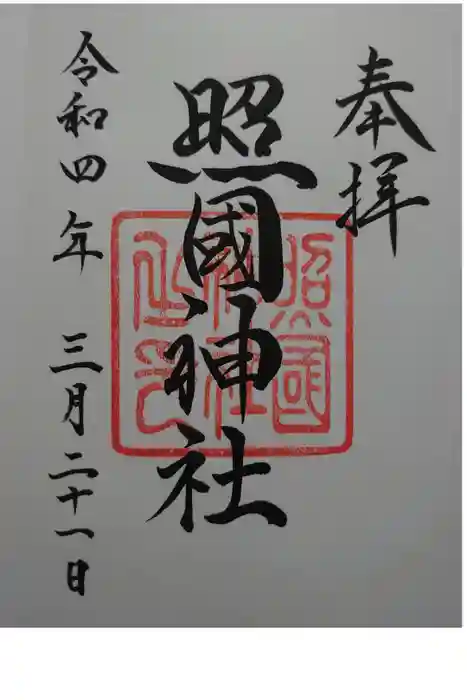 奉拝
照國神社
照国
神社
之印
令和四年 三月二十一日